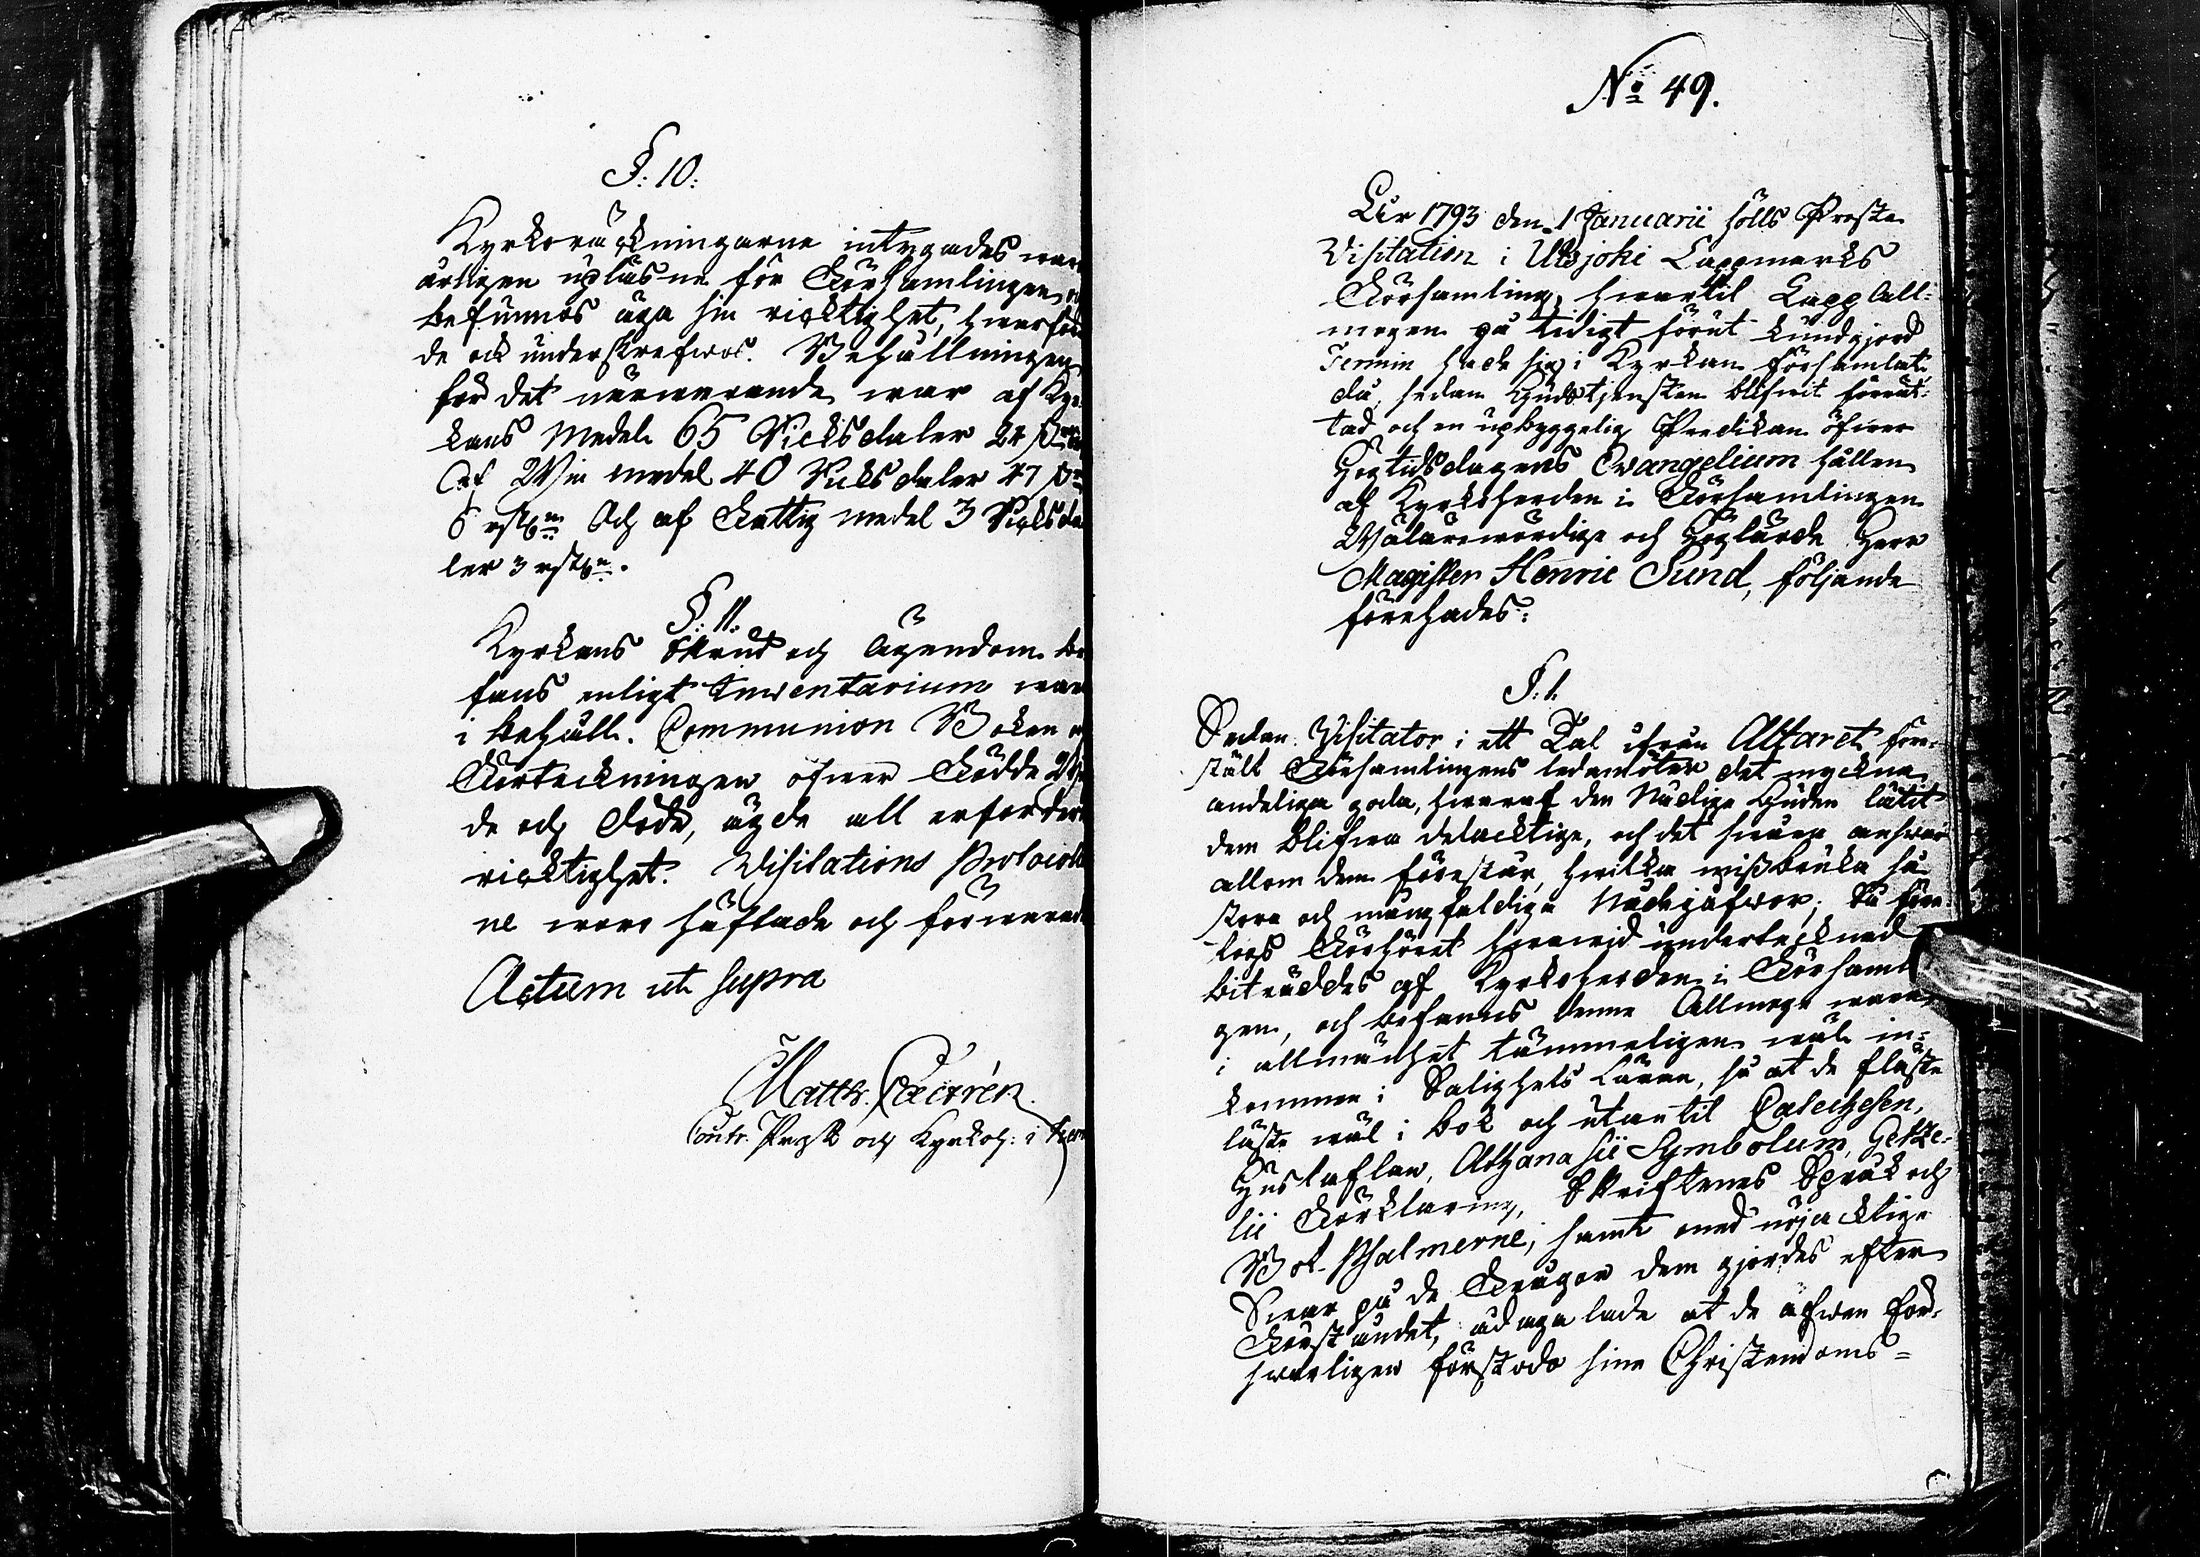 §. 10:
Kyrkoräckningarne intygades war
årligen upläsne för Församlingen,
befunnos äga sin ricktighet, hwarföre
de ock underskrefwos. Behållningen
för det närwarande war af Kyr-
kans Medel 65 Ricksdaler 24
Af Win medel 40 Ricksdaler 47
6 Och af Fattig medel 3 Ricksda
ler 3
§. 11.
Kyrkans Skrud och Ägendom be
fans enligt Inventarium wara
i behåll. Communion Boken
Förteckningen öfwer Födde Wig
de och Döde, ägde all erforder
ricktighet. Visitations Protocoll
ne woro häftade och förwarade
Actum ut supra
Matth. Castrén.
Contr. Prost och Kyrkoh: i
No 49.
År 1793 den 1 Januarii hölls Proste
Visitation i Utsjoki Lappmarks
Församling, hwartil Lapp All-
mogen på tidigt förut kundgjord
Termin hade sig i Kyrkan församlat,
då, sedan Gudstjensten blifwit förrät-
tad och en upbyggelig Predikan öfwer
Högtidsdagens Evangelium hållen
af Kyrkoherden i Församlingen
Wälärewördige och Höglärde Herr
Magister Henric Sund, följande
förehades:
§. 1.
Sedan Visitator i ett Tal ifrån Altaret före-
stält Församlingens ledamöter det myckna
andeliga goda, hwaraf den Nådige Guden låtit
dem blifwa delacktige, och det swåra answar
allom dem förestår, hwilka missbruka så
stora och mångfaldiga Nådegåfwor; Så före-
togs Förhöret hwarwid undertecknad
biträddes af Kyrkoherden i Församl
gen, och befanns denna Allmoge wara
i allmänhet tämmeligen wäl in-
kommen i Salighets Läran, så at de fläste
läste wäl i bok och utantil Catechesen,
Hustaflan, Athanasii Symbolum, Gezze-
lii Förklaring, Skriftenes Språk och
Bot-Psalmerne, samt med noijacktige
Swar på de Frågor dem gjordes efter
Förståndet, ådagalade at de äfwen för-
swarligen förstodo sina Christendoms-